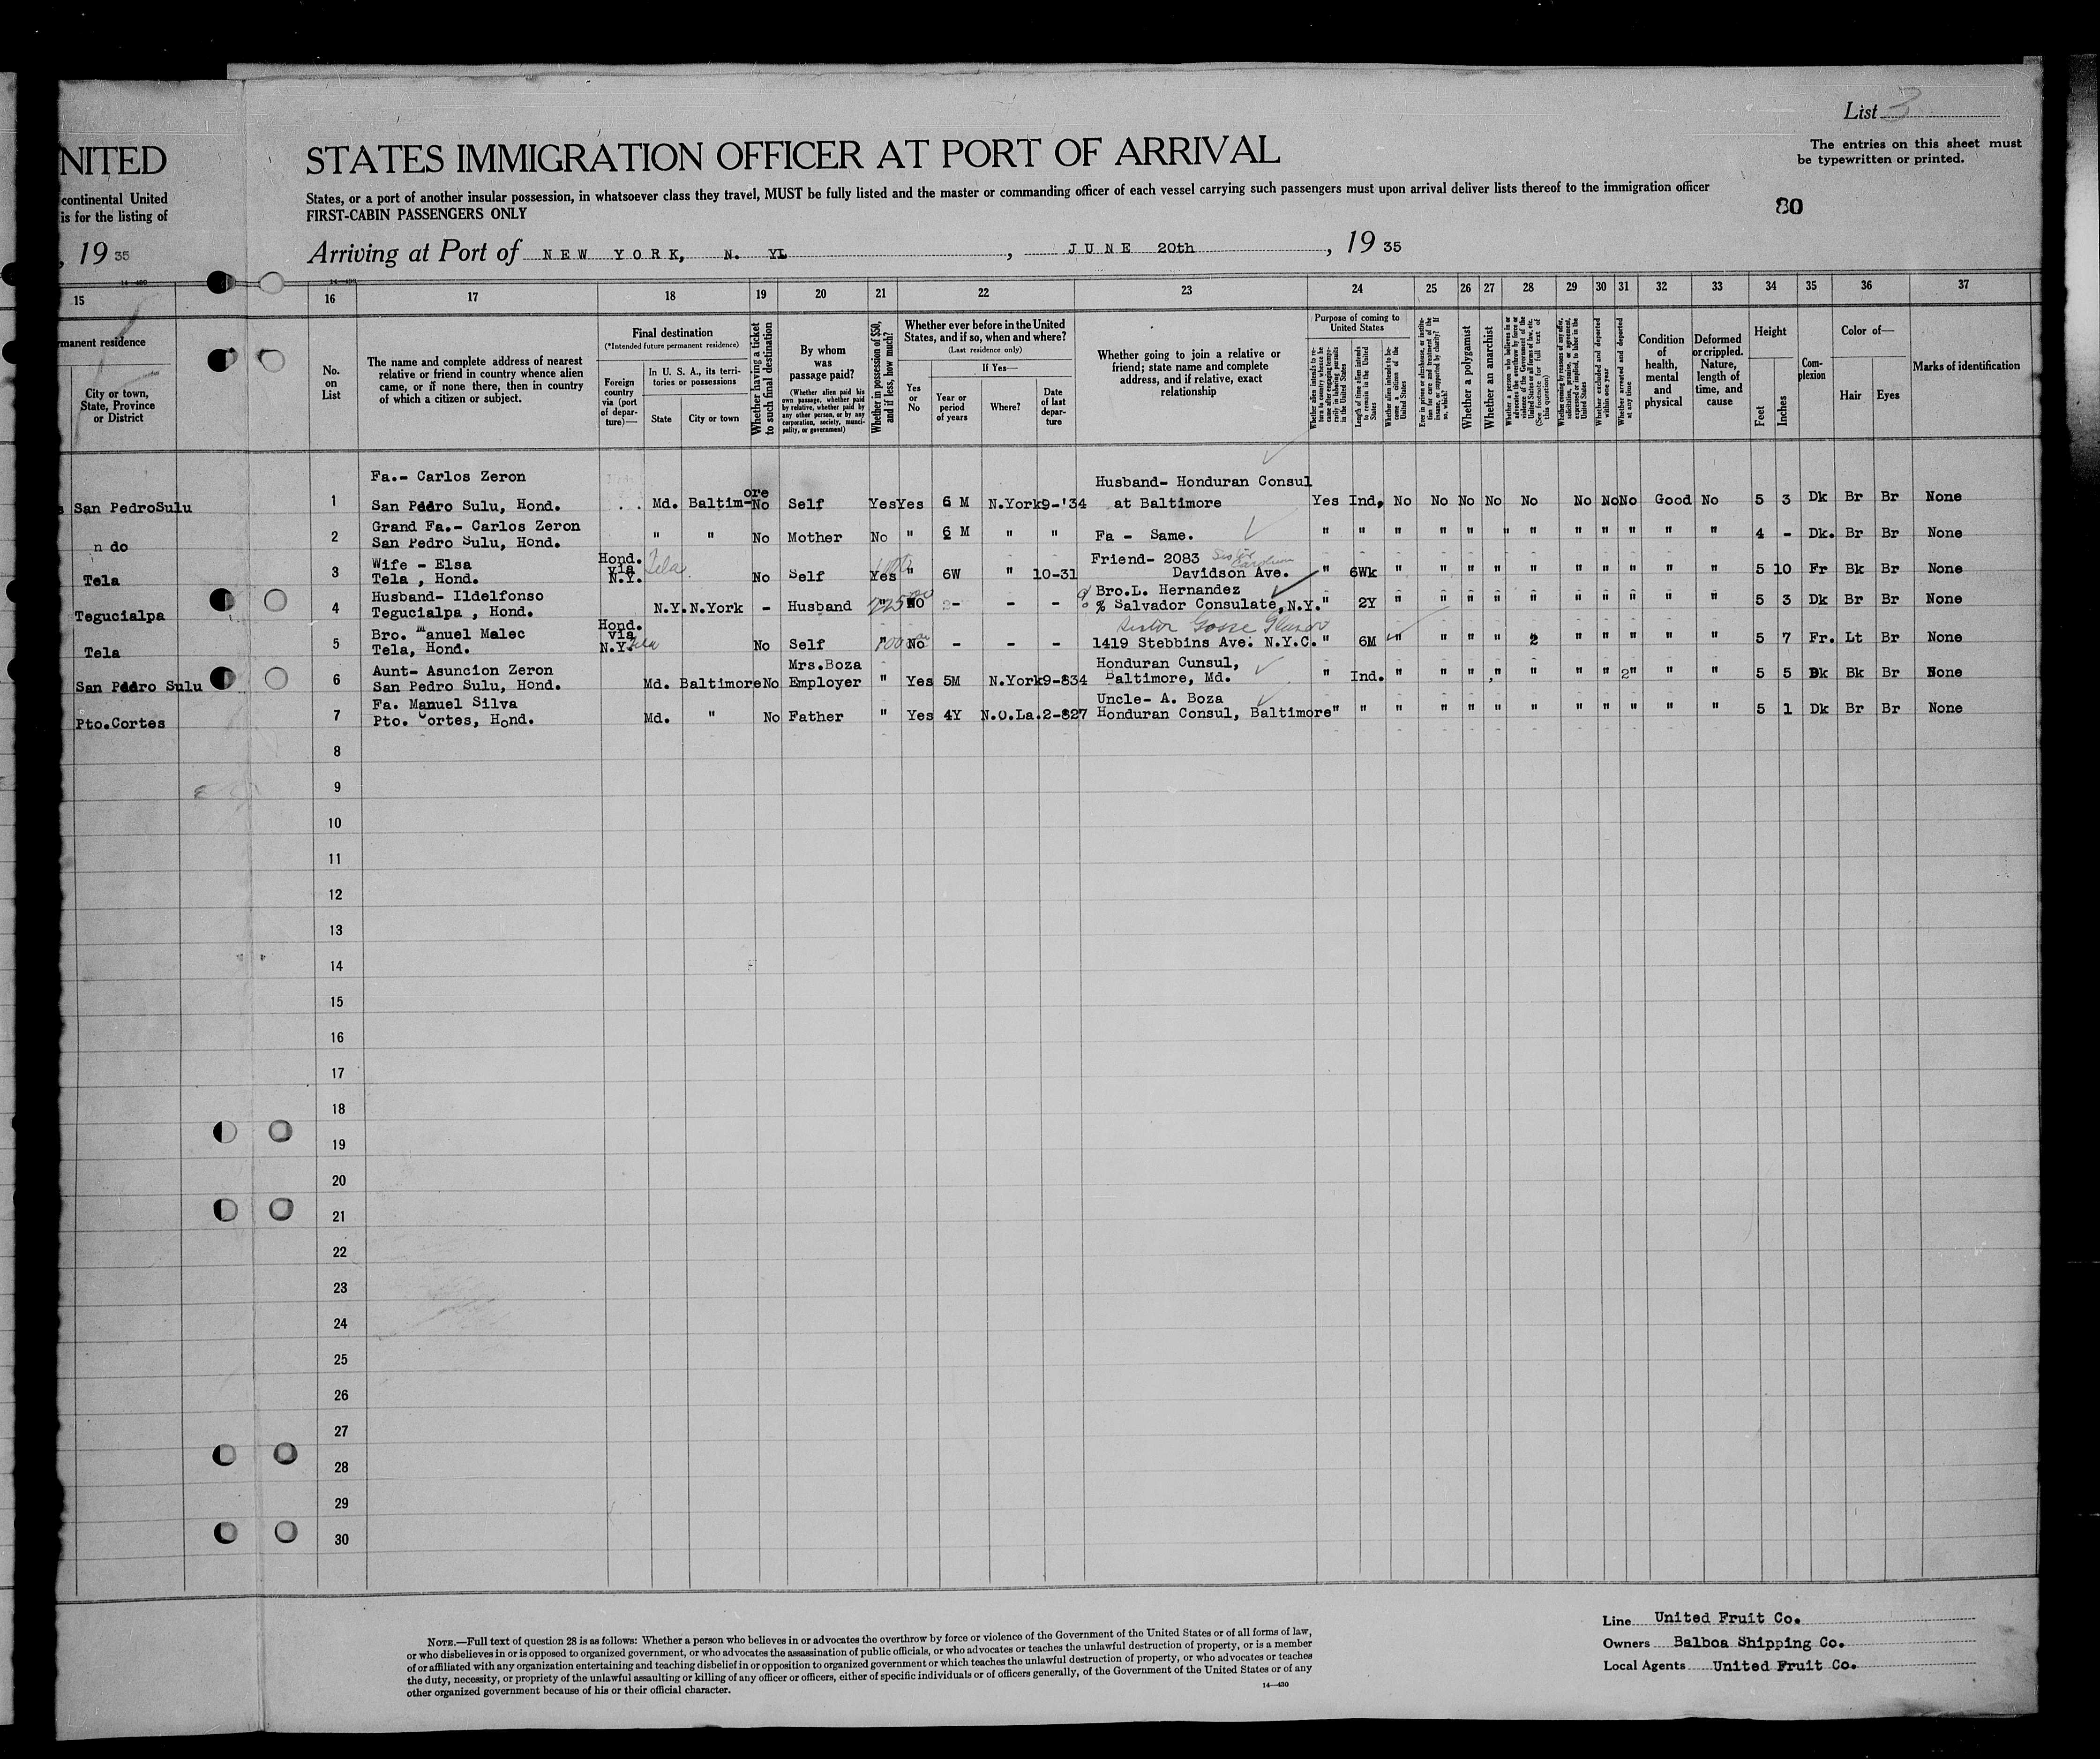 List 3
The entries on this sheet must
be typewritten or printed.
NITED STATES IMMIGRATION OFFICER AT PORT OF ARRIVAL
continental United States, or a port of another insular possession, in whatsoever class they travel, MUST be fully listed and the master or commanding officer of each vessel carrying such passengers must upon arrival deliver lists thereof to the immigration officer
is for the listing of FIRST-CABIN PASSENGERS ONLY
80
, 19 35 Arriving at Port of NEW YORK, N. Y. , JUNE 20th , 19 35
15 16 17 18 19 20 21 22 23 24 25 26 27 28 29 30 31 32 33 34 35 36 37
manent residence
City or town, State, Province or District
No. on List
The name and complete address of nearest relative or friend in country whence alien came, or if none there, then in country of which a citizen or subject.
Final destination
(*Intended future permanent residence)
Foreign country via (port of departure)—
In U. S. A., its territories or possessions
State City or town
Whether having a ticket to such final destination
By whom was passage paid?
(Whether alien paid his own passage, whether paid by relative, whether paid by any other person, or by any corporation, society, municipality, or government)
Whether in possession of $50, and if less, how much?
Whether ever before in the United States, and if so, when and where?
(Last residence only)
Yes or No
If Yes—
Year or period of years Where? Date of last departure
Whether going to join a relative or friend; state name and complete address, and if relative, exact relationship
Purpose of coming to United States
Length of time alien intends to remain in the United States
Whether alien intends to become a citizen of the United States
Whether a polygamist
Whether an anarchist
Whether excluded and deported within one year
Whether arrested and deported at any time
Condition of health, mental and physical
Deformed or crippled. Nature, length of time, and cause
Height
Feet Inches
Complexion
Color of—
Hair Eyes
Marks of identification
Fa.- Carlos Zeron ore Husband- Honduran Consul
San PedroSulu 1 San Pedro Sulu, Hond. Md. Baltim- No Self Yes Yes 6 M N.York 9-'34 at Baltimore Yes Ind, No No No No No No No No Good No 5 3 Dk Br Br None
Grand Fa.- Carlos Zeron
n do 2 San Pedro Sulu, Hond. " " No Mother No " 6 M " " Fa - Same. " " " " " " " " " " " " 4 - Dk. Br Br None
Wife - Elsa Hond. via Friend- 2083 Sister
Tela 3 Tela , Hond. N.Y. Tela No Self Yes " 6W " 10-31 Davidson Ave. " 6Wk " " " " " " " " " " 5 10 Fr Bk Br None
Husband- Ildelfonso Bro.L. Hernandez
Tegucialpa 4 Tegucialpa , Hond. N.Y. N.York - Husband No - - - % Salvador Consulate, N.Y. " 2Y " " " " " " " " " " 5 3 Dk Br Br None
Bro. Manuel Malec Hond. via Sister
Tela 5 Tela, Hond. N.Y. Tela No Self " No - - - 1419 Stebbins Ave. N.Y.C. " 6M " " " " 2 " " " " " 5 7 Fr. Lt Br None
Aunt- Asuncion Zeron Mrs.Boza Honduran Cunsul,
San Pedro Sulu 6 San Pedro Sulu, Hond. Md. Baltimore No Employer " Yes 5M N.York 9-834 Baltimore, Md. " Ind. " " " " " " " 2" " " 5 5 Dk Bk Br None
Fa. Manuel Silva Uncle- A. Boza
Pto.Cortes 7 Pto. Cortes, Hond. Md. " No Father " Yes 4Y N.O.La. 2-827 Honduran Consul, Baltimore " " " " " " " " " " " " 5 1 Dk Br Br None
8
9
10
11
12
13
14
15
16
17
18
19
20
21
22
23
24
25
26
27
28
29
30
NOTE.—Full text of question 28 is as follows: Whether a person who believes in or advocates the overthrow by force or violence of the Government of the United States or of all forms of law,
or who disbelieves in or is opposed to organized government, or who advocates the assassination of public officials, or who advocates or teaches the unlawful destruction of property, or is a member
of or affiliated with any organization entertaining and teaching disbelief in or opposition to organized government or which teaches the unlawful destruction of property, or who advocates or teaches
the duty, necessity, or propriety of the unlawful assaulting or killing of any officer or officers, either of specific individuals or of officers generally, of the Government of the United States or of any
other organized government because of his or their official character.
14—430
Line United Fruit Co.
Owners Balboa Shipping Co.
Local Agents United Fruit Co.